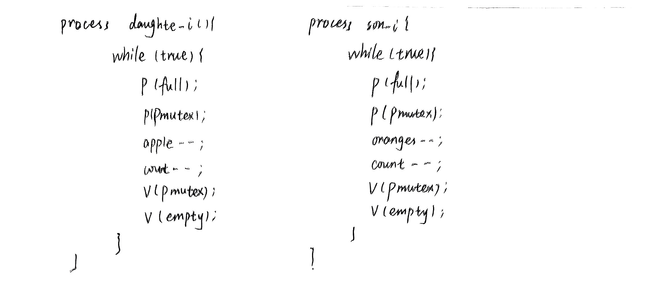 process daughte-i(){
while (true) {
P(full);
P(Pmutex);
apple --;
count --;
V(Pmutex);
V(empty);
}
}
process son-i {
while (true){
P(full);
P(Pmutex);
oranges --;
count --;
V(Pmutex);
V(empty);
}
}